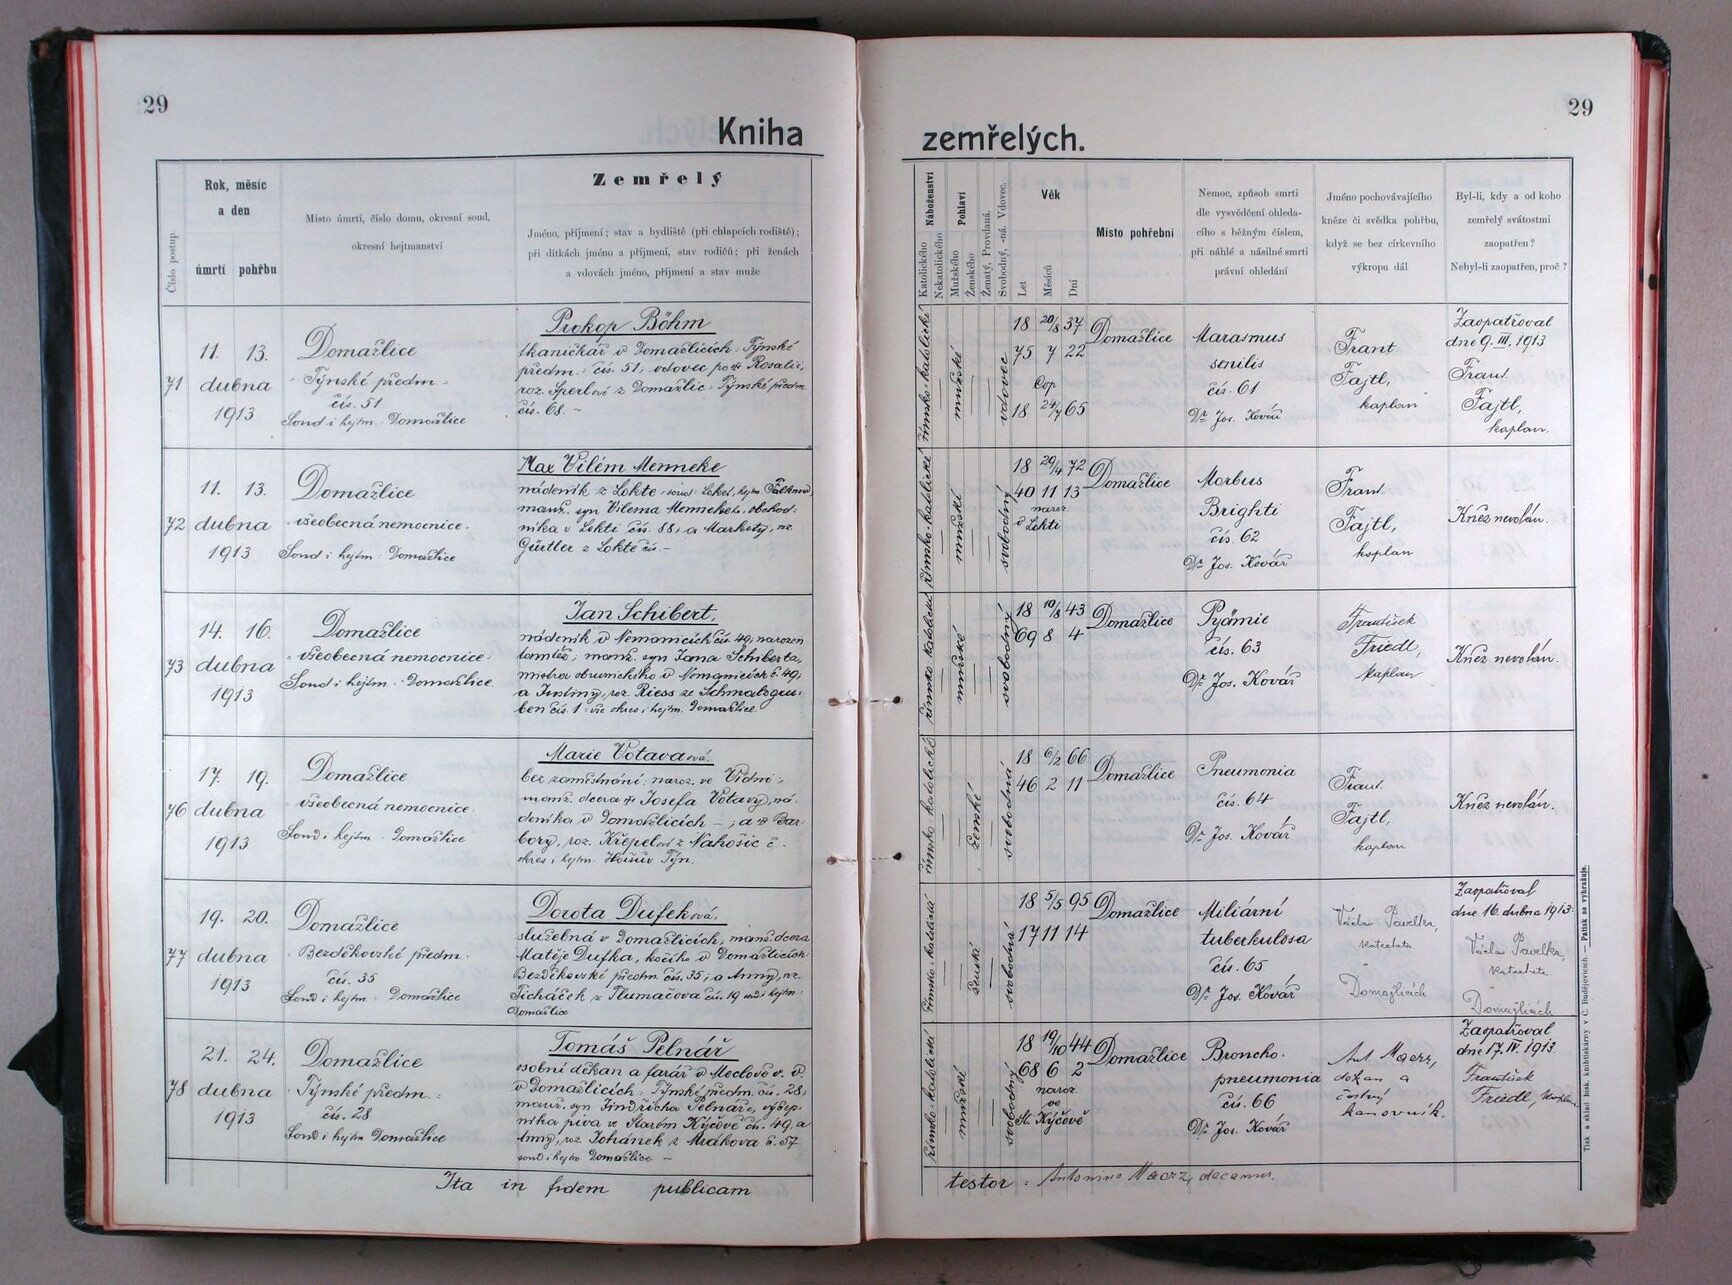 29
Kniha
Číslo postup.
Rok, měsíc
a den
úmrtí pohřbu
Místo úmrtí, číslo domu, okresní soud,
okresní hejtmanství
Zemřelý
Jméno, příjmení; stav a bydliště (při chlapcích rodiště);
při dítkách jméno a příjmení, stav rodičů; při ženách
a vdovách jméno, příjmení a stav muže
71
11. 13.
dubna
1913
Domažlice
Týnské předm.
čís. 51
Soud i hejtm. Domažlice
Prokop Böhm
tkaničkář v Domažlicích: Týnské
předm. čís. 51, vdovec po Rosalii,
roz. Sperlové z Domažlic: Týnské předm.
čís. 68. -
72
11. 13.
dubna
1913
Domažlice
všeobecná nemocnice.
Soud i hejtm: Domažlice
Max Vilém Menneke
nádeník z Lokte soud: Loket, hejtm. Falknov,
manž. syn Vilema Mennekeho, obchod-
níka v Lokti čís. 88, a Markety, roz.
Gütler z Lokte čís. -
73
14. 16.
dubna
1913
Domažlice
všeobecná nemocnice.
Soud i hejtm. Domažlice
Jan Schibert,
nádeník v Nemanicích čís. 49, narozen
tamtéž, manž. syn Jana Schiberta,
mistra obuvnického v Nemanicích č. 49,
a Justiny, roz. Riess ze Schmalzgru-
ben čís. 1 vše okres i hejtm. Domažlice.
76
17. 19.
dubna
1913
Domažlice
všeobecná nemocnice.
Soud i hejtm. Domažlice
Marie Votavaová.
bez zaměstnání: naroz. ve Vídni;
manž. dcera Josefa Votavy, ná-
deníka v Domažlicích - ; a Bar-
bory, roz. Křepelové z Nahošic č. -
okres i hejtm. Horšův Týn.
77
19. 20.
dubna
1913
Domažlice
Bezděkovské předm.
čís. 35
Soud i hejtm. Domažlice
Dorota Dufeková.
služebná v Domažlicích, manž. dcera
Matěje Dufka, kočího v Domažlicích
Bezděkovské předm. čís. 35; a Anny, roz.
Ticháček z Tlumačova čís. 19 soud i hejtm:
Domažlice
78
21. 24.
dubna
1913
Domažlice
Týnské předm.
čís. 28
Soud i hejtm Domažlice
Tomáš Pelnář
osobní děkan a farář v Meclově v. v.
v Domažlicích: Týnské předm. čís. 28,
manž. syn Jindřicha Pelnáře, výčep-
níka piva ve Starém Kýčově čís. 49. a
Anny, roz. Johánek z Mrákova č. 57
soud i hejtm Domažlice -
Ita in fidem publicam
29
zemřelých.
Náboženství
Katolického
Nekatolického
Pohlaví
Mužského
Ženského
Ženatý, Provdaná.
Svobodný, -ná. Vdovec.
Věk
Let
Měsíců
Dní
Místo pohřební
Nemoc, způsob smrti
dle vysvědčení ohleda-
cího s běžným číslem,
při náhlé a násilné smrti
právní ohledání
Jméno pochovávajícího
kněze či svědka pohřbu,
když se bez církevního
výkropu dál
Byl-li, kdy a od koho
zemřelý svátostmi
zaopatřen?
Nebyl-li zaopatřen, proč?
římsko-katolické
mužské
vdovec
18 20/8 37
75 7 22
Cop
18 24/7 65
Domažlice
Marasmus
senilis
čís. 61
Dr. Jos. Kovář
Frant
Fajtl,
kaplan
Zaopatřoval
dne 9. III. 1913
Frant.
Fajtl,
kaplan.
římsko-katolické
mužské
svobodný
18 29/4 72
40 11 13
naroz.
v Lokti
Domažlice
Morbus
Brighti
čís. 62
Dr. Jos. Kovář
Frant.
Fajtl,
kaplan
Kněz nevolán.
římsko-katolické
mužské
svobodný
18 10/8 43
69 8 4
Domažlice
Pyämie
čís. 63
Dr. Jos. Kovář
František
Friedl,
kaplan
Kněz nevolán.
římsko-katolické
ženské
svobodná
18 6/2 66
46 2 11
Domažlice
Pneumonia
čís. 64
Dr. Jos. Kovář
Frant.
Fajtl,
kaplan
Kněz nevolán.
římsko-katolické
ženské
svobodná
18 5/5 95
17 11 14
Domažlice
Miliární
tuberkulosa
čís. 65
Dr. Jos. Kovář
Václav Pavelka,
katecheta
v
Domažlicích
Zaopatřoval
dne 16. dubna 1913:
Václav Pavelka,
katecheta
v
Domažlicích
římsko-katolické
mužské
svobodný
18 19/10 44
68 6 2
naroz.
ve
St. Kýčově
Domažlice
Broncho-
pneumonia
čís. 66
Dr. Jos. Kovář
Ant. Maerz,
děkan a
čestný
kanovník.
Zaopatřoval
dne 17. IV. 1913
František
Friedl, kaplan
testor: Antonius Maerz, decanus.
Tisk a sklad bisk. knihtiskárny v Č. Budějovicích. — Patisk se vyhražuje.